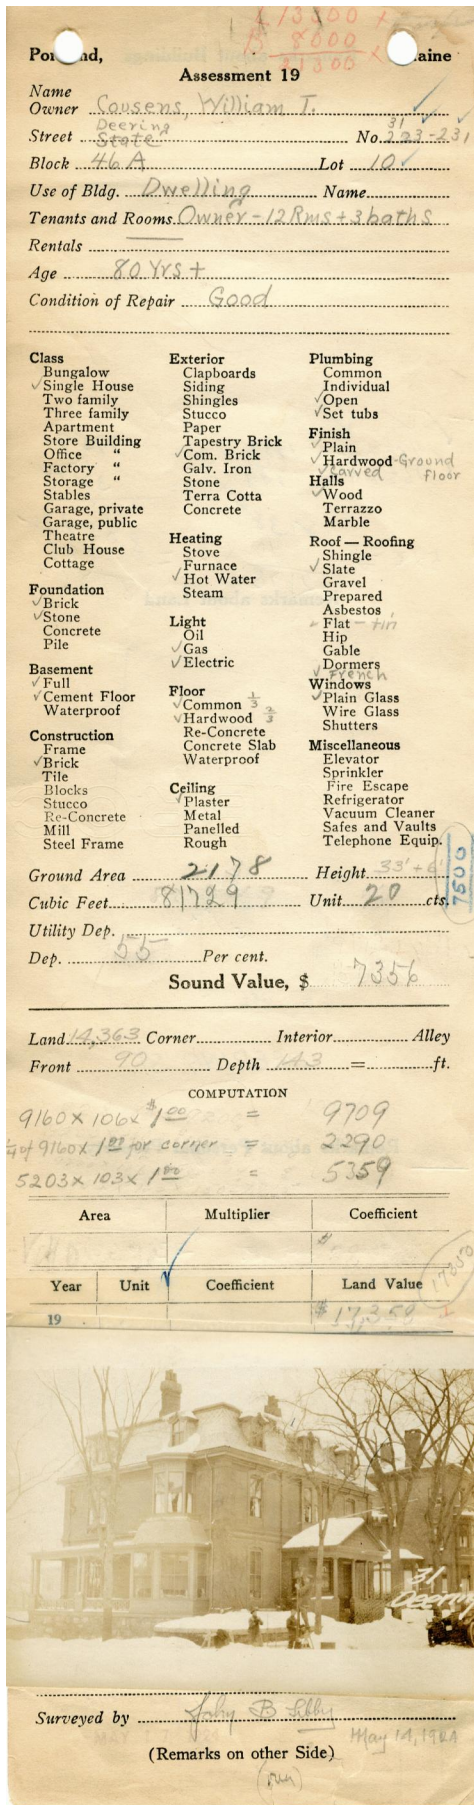 L 13300 x
B 8000 x
21300
Portland, Maine
Assessment 19
Name
Owner Cousens, William T. ✓
Deering 31 ✓ ✓
Street State No. 223-231
Block 46A Lot 10 ✓
Use of Bldg. Dwelling Name
Tenants and Rooms Owner - 12 Rms + 3 baths
Rentals
Age 80 Yrs +
Condition of Repair Good
Class
Bungalow
✓ Single House
Two family
Three family
Apartment
Store Building
Office "
Factory "
Storage "
Stables
Garage, private
Garage, public
Theatre
Club House
Cottage
Foundation
✓ Brick
✓ Stone
Concrete
Pile
Basement
✓ Full
✓ Cement Floor
Waterproof
Construction
Frame
✓ Brick
Tile
Blocks
Stucco
Re-Concrete
Mill
Steel Frame
Exterior
Clapboards
Siding
Shingles
Stucco
Paper
Tapestry Brick
✓ Com. Brick
Galv. Iron
Stone
Terra Cotta
Concrete
Heating
Stove
Furnace
✓ Hot Water
Steam
Light
Oil
✓ Gas
✓ Electric
Floor
✓ Common 1/3
✓ Hardwood 2/3
Re-Concrete
Concrete Slab
Waterproof
Ceiling
✓ Plaster
Metal
Panelled
Rough
Plumbing
Common
Individual
✓ Open
✓ Set tubs
Finish
✓ Plain
✓ Hardwood - Ground
✓ Carved floor
Halls
✓ Wood
Terrazzo
Marble
Roof — Roofing
Shingle
✓ Slate
Gravel
Prepared
Asbestos
✓ Flat - tin
Hip
Gable
Dormers
✓ French
Windows
✓ Plain Glass
Wire Glass
Shutters
Miscellaneous
Elevator
Sprinkler
Fire Escape
Refrigerator
Vacuum Cleaner
Safes and Vaults
Telephone Equip.
7500
Ground Area 2178 Height 33' + 6'
Cubic Feet 81729 Unit 20 cts.
Utility Dep.
Dep. 55 Per cent.
Sound Value, $ 7356
Land 14,363 Corner Interior Alley
Front 90 Depth 143 = ft.
COMPUTATION
9160 x 106 x $1.00 = 9709
1/4 of 9160 x 1.00 for corner = 2290
5203 x 103 x 1.00 = 5359
Area Multiplier Coefficient
$
Year Unit ✓ Coefficient Land Value
17350
19 $17,358
31
Deering
Surveyed by John B Libby
May 14, 1924
(Remarks on other Side)
(over)